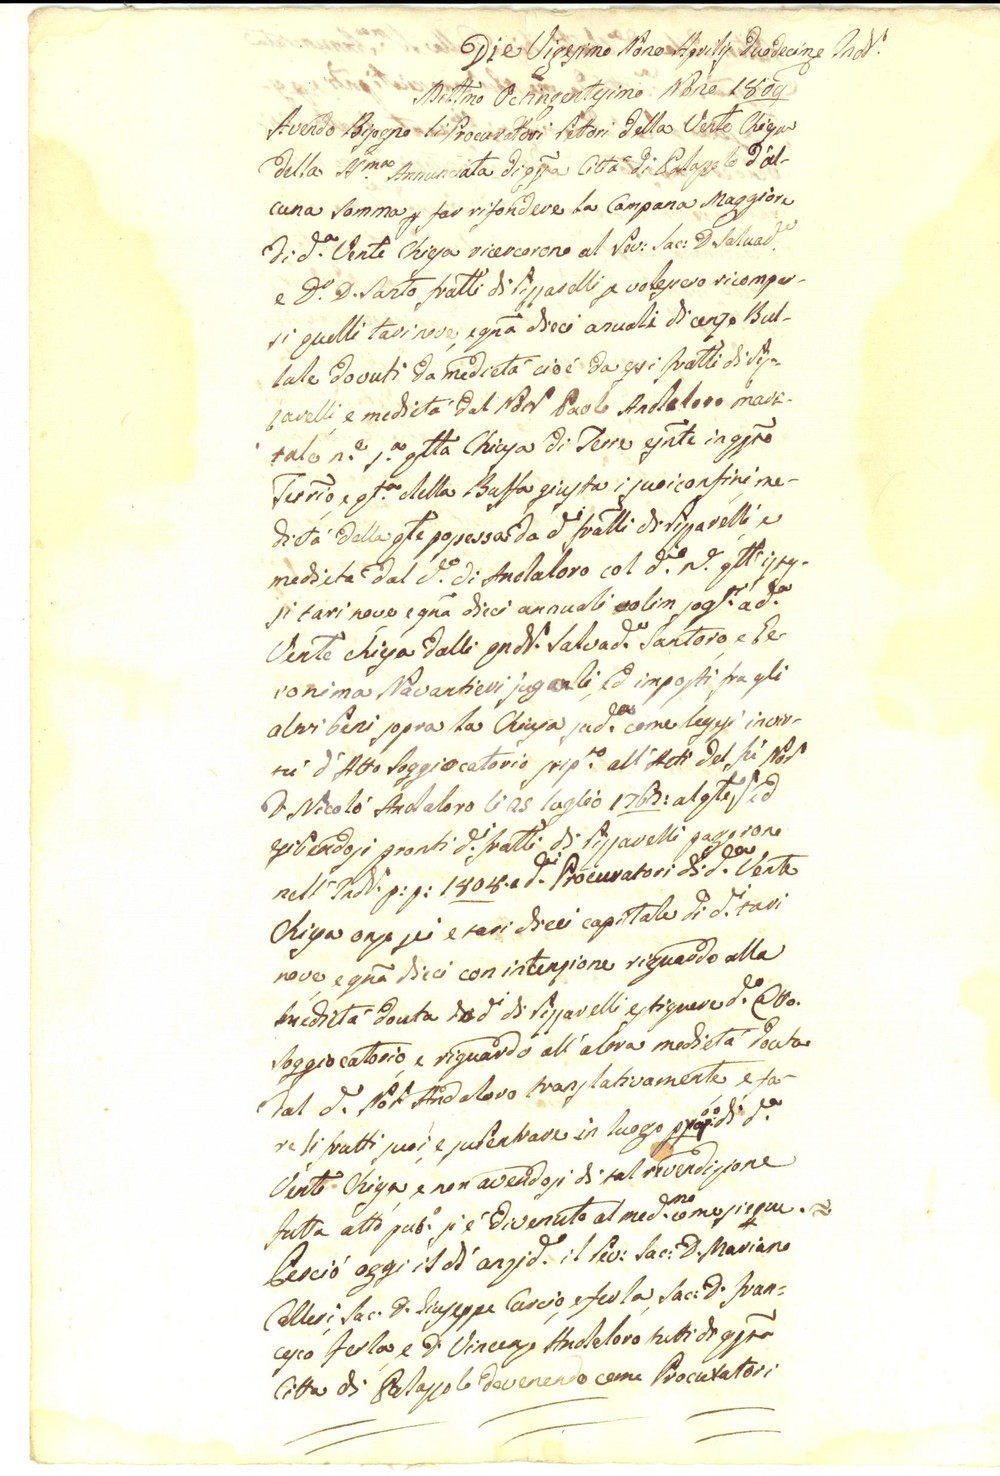 Die Vigesimo Nono Aprilis Duodecime Ind.
Millmo Octingentesimo Nono 1809
Avendo Bisogno li Procuratori Rettori della Vente Chiesa
della SS.ma Annunciata di qsta Città di Palazzolo d'al-
cuna somma p far rifondere la Campana Maggiore
di d.a Vente Chiesa ricercorono al Rev: Sac: D. Salvad.e
e D.r D. Santo fratti di Pizzarelli a volersero ricompar-
si quelli tari nove, e gna dieci annuali di censo Bul-
lale dovuti da medietà cioè da qsi fratti di Piz-
zarelli e medietà dal Not. Paolo Andaloro mari-
tale n.e s.a qtta Chiesa di Terre esnte in qsto
Terrio e qta della Buffa giusta i suoi confini me-
dietà della qle possessa da d.i fratti di Pizzarelli, e
medietà dal d.o di Andaloro col d.o n.e qlli istes-
si tari nove e gna dieci annuali olim sogti a d.a
Vente Chiesa dalli qndi. Salvad.e Santoro e Ge-
ronima Navantieri jugali, ed imposti fra gli
altri beni sopra la Chiesa sud.a come leggesi in vir-
tù d'Atto Soggiocatorio strip.to all'Atti del fù Not
D. Nicolò Andaloro li 25 luglio 1763: al qle, ed
esibendosi pronti d.i fratti di Pizzarelli pagorono
nell'Ind. p: p: 1808. e d.i Procuratori di d.a Vente
Chiesa onze sei e tari dieci capitale di d.i tari
nove e gna dieci con intenzione riguardo alla
medietà douta da d.i di Pizzarelli estiguere d.o Atto.
Soggiocatorio, e riguardo all'altra medietà douta
dal d.o Not. Andaloro translativamente e fa-
re li frutti suoi, e subentrare in luogo di d.a
Vente Chiesa e non avendosi di tal rivendizione
fatta atto pub.o si è divenuto al med.mo come siegue.
Perciò oggi il dì anzid.o il Rev: Sac: D. Mariano
Calleri, Sac. D. Giuseppe Curcio, e ferla, Sac: D. Fran-
cesco ferla, e D. Vincenzo Andaloro tutti di qsta
Città di Palazzolo devenendo come Procuratori